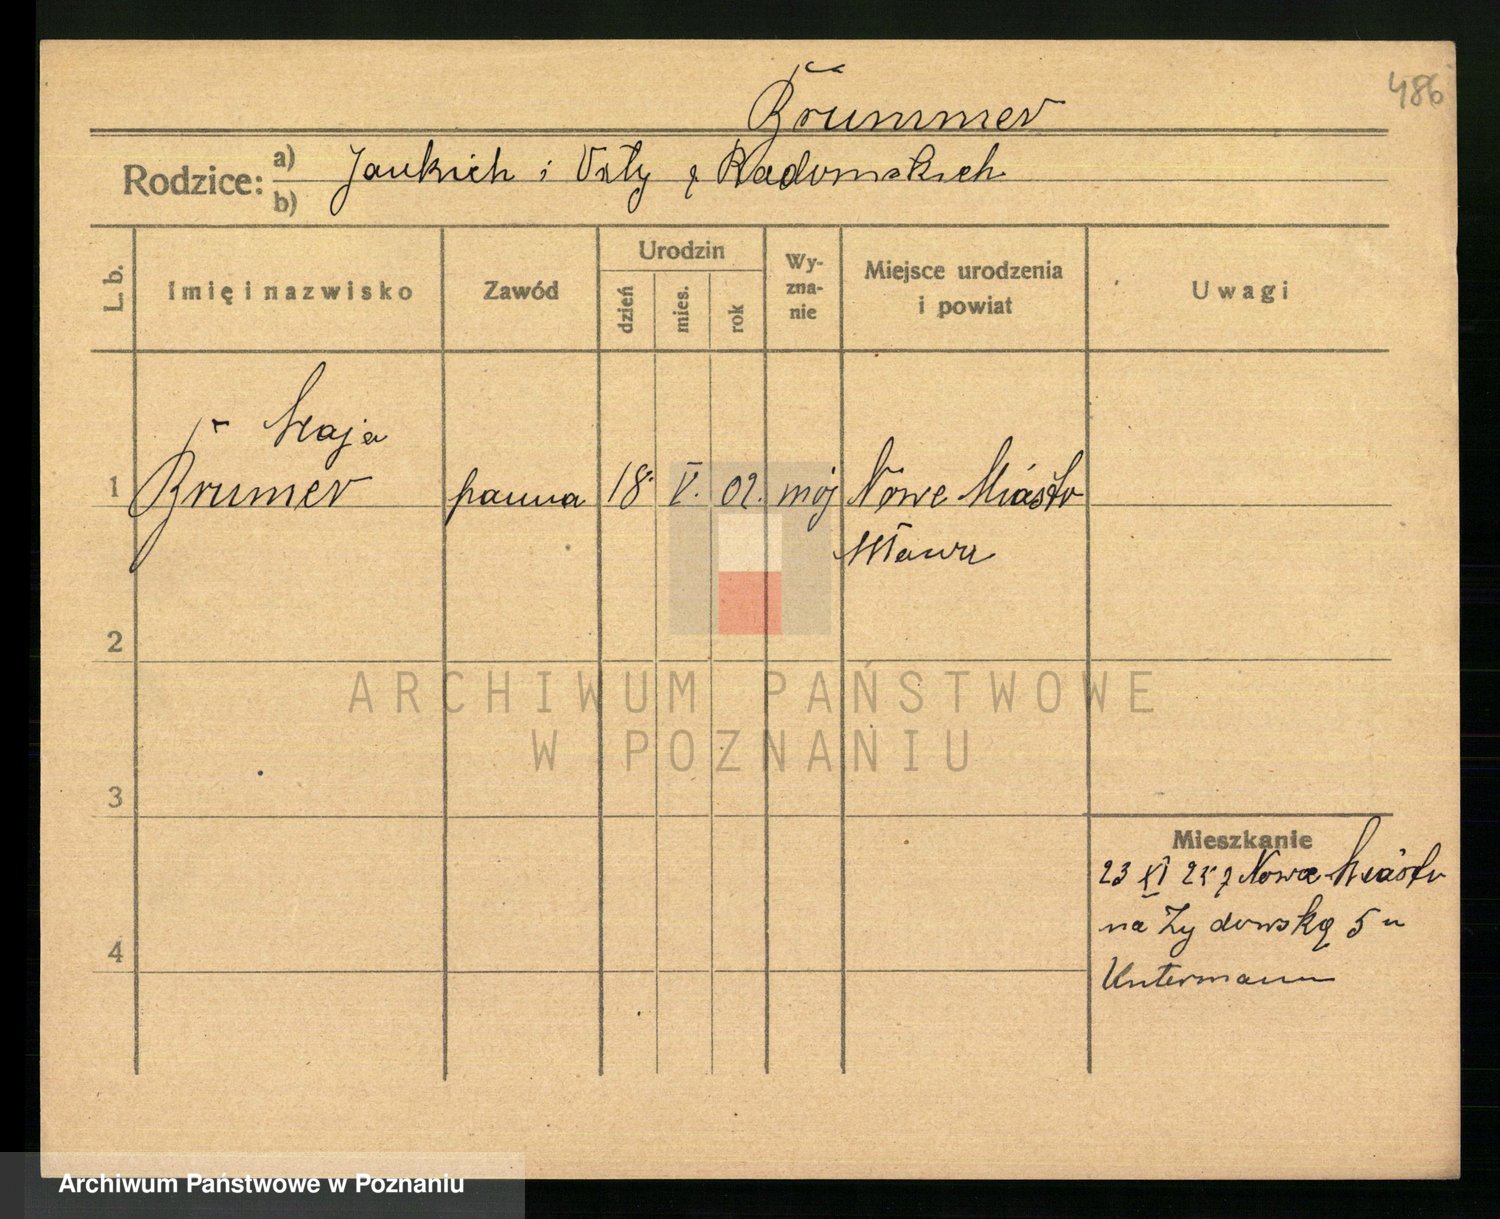 486
Brummer
Rodzice: a) b)
Jankich i Itty z Radomskich
L. b.
Imię i nazwisko
Zawód
Urodzin
dzień
mies.
rok
Wy-
zna-
nie
Miejsce urodzenia
i powiat
Uwagi
Maja
1 Brumer panna 18. V. 02. moj Nowe Miasto
Mława
2
3
4
Mieszkanie
23 XI 25 z Nowe Miasto
na Żydowską 5 u
Untermann
ARCHIWUM PAŃSTWOWE
W POZNANIU
Archiwum Państwowe w Poznaniu